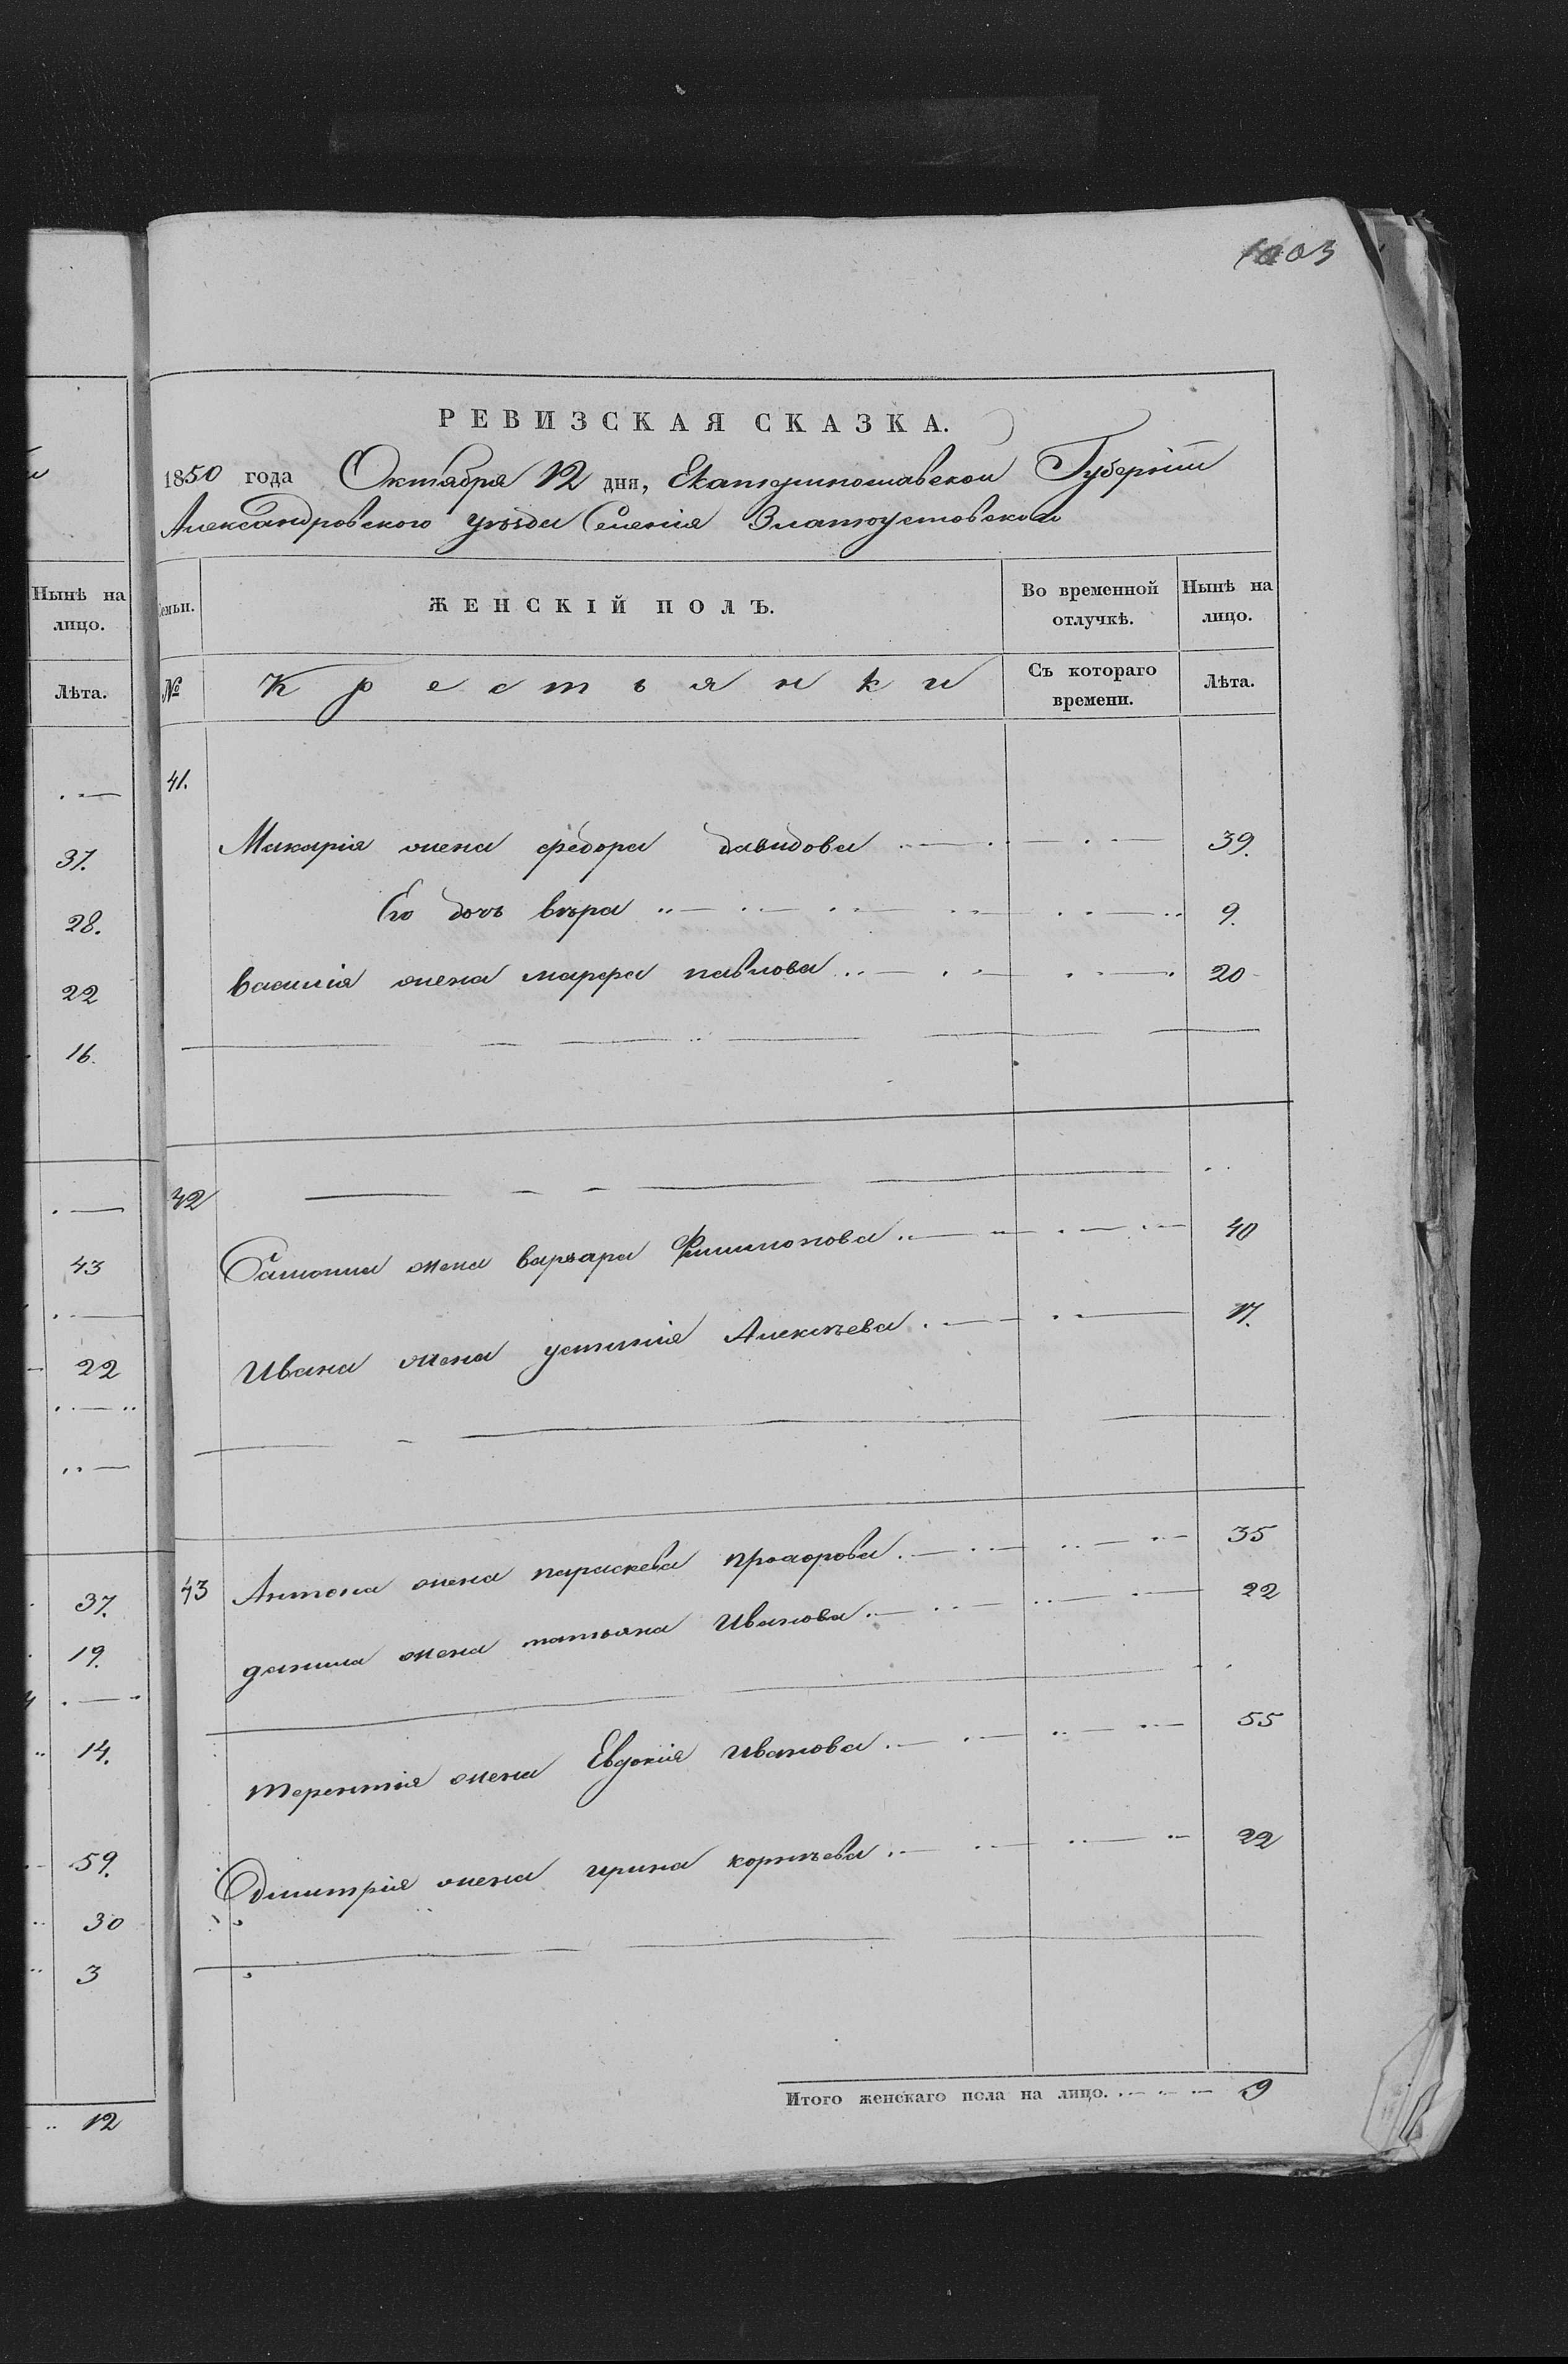 1003
РЕВИЗСКАЯ СКАЗКА.
1850 года Октября 12 дня, Екатеринославской Губерніи
Александровского уѣзда Селенія Златоустовской
Семьи. ЖЕНСКІЙ ПОЛЪ. Во временной отлучкѣ. Нынѣ на лицо.
№ Крестьянки Съ котораго времени. Лѣта.
41.
Макарія жена федора давидова 39.
Его дочь вѣра 9.
василія жена марфа павлова 20
42
Самойла жена варвара Филимонова 40
Ивана жена устинія Алексѣева 17.
43 Антона жена параскева прохорова 35
данила жена татьяна Иванова 22
терентія жена Евдокія иванова 55
дмитрія жена ирина корнѣева 22
Итого женскаго пола на лицо. 9
Нынѣ на
лицо.
Лѣта.
37.
28.
22
16.
43
22
37.
19.
14.
59.
30
3
12